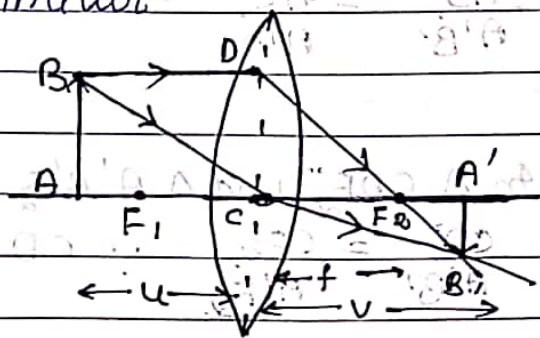 B D
A F₁ C₁ F₂ A'
B'
u f
v